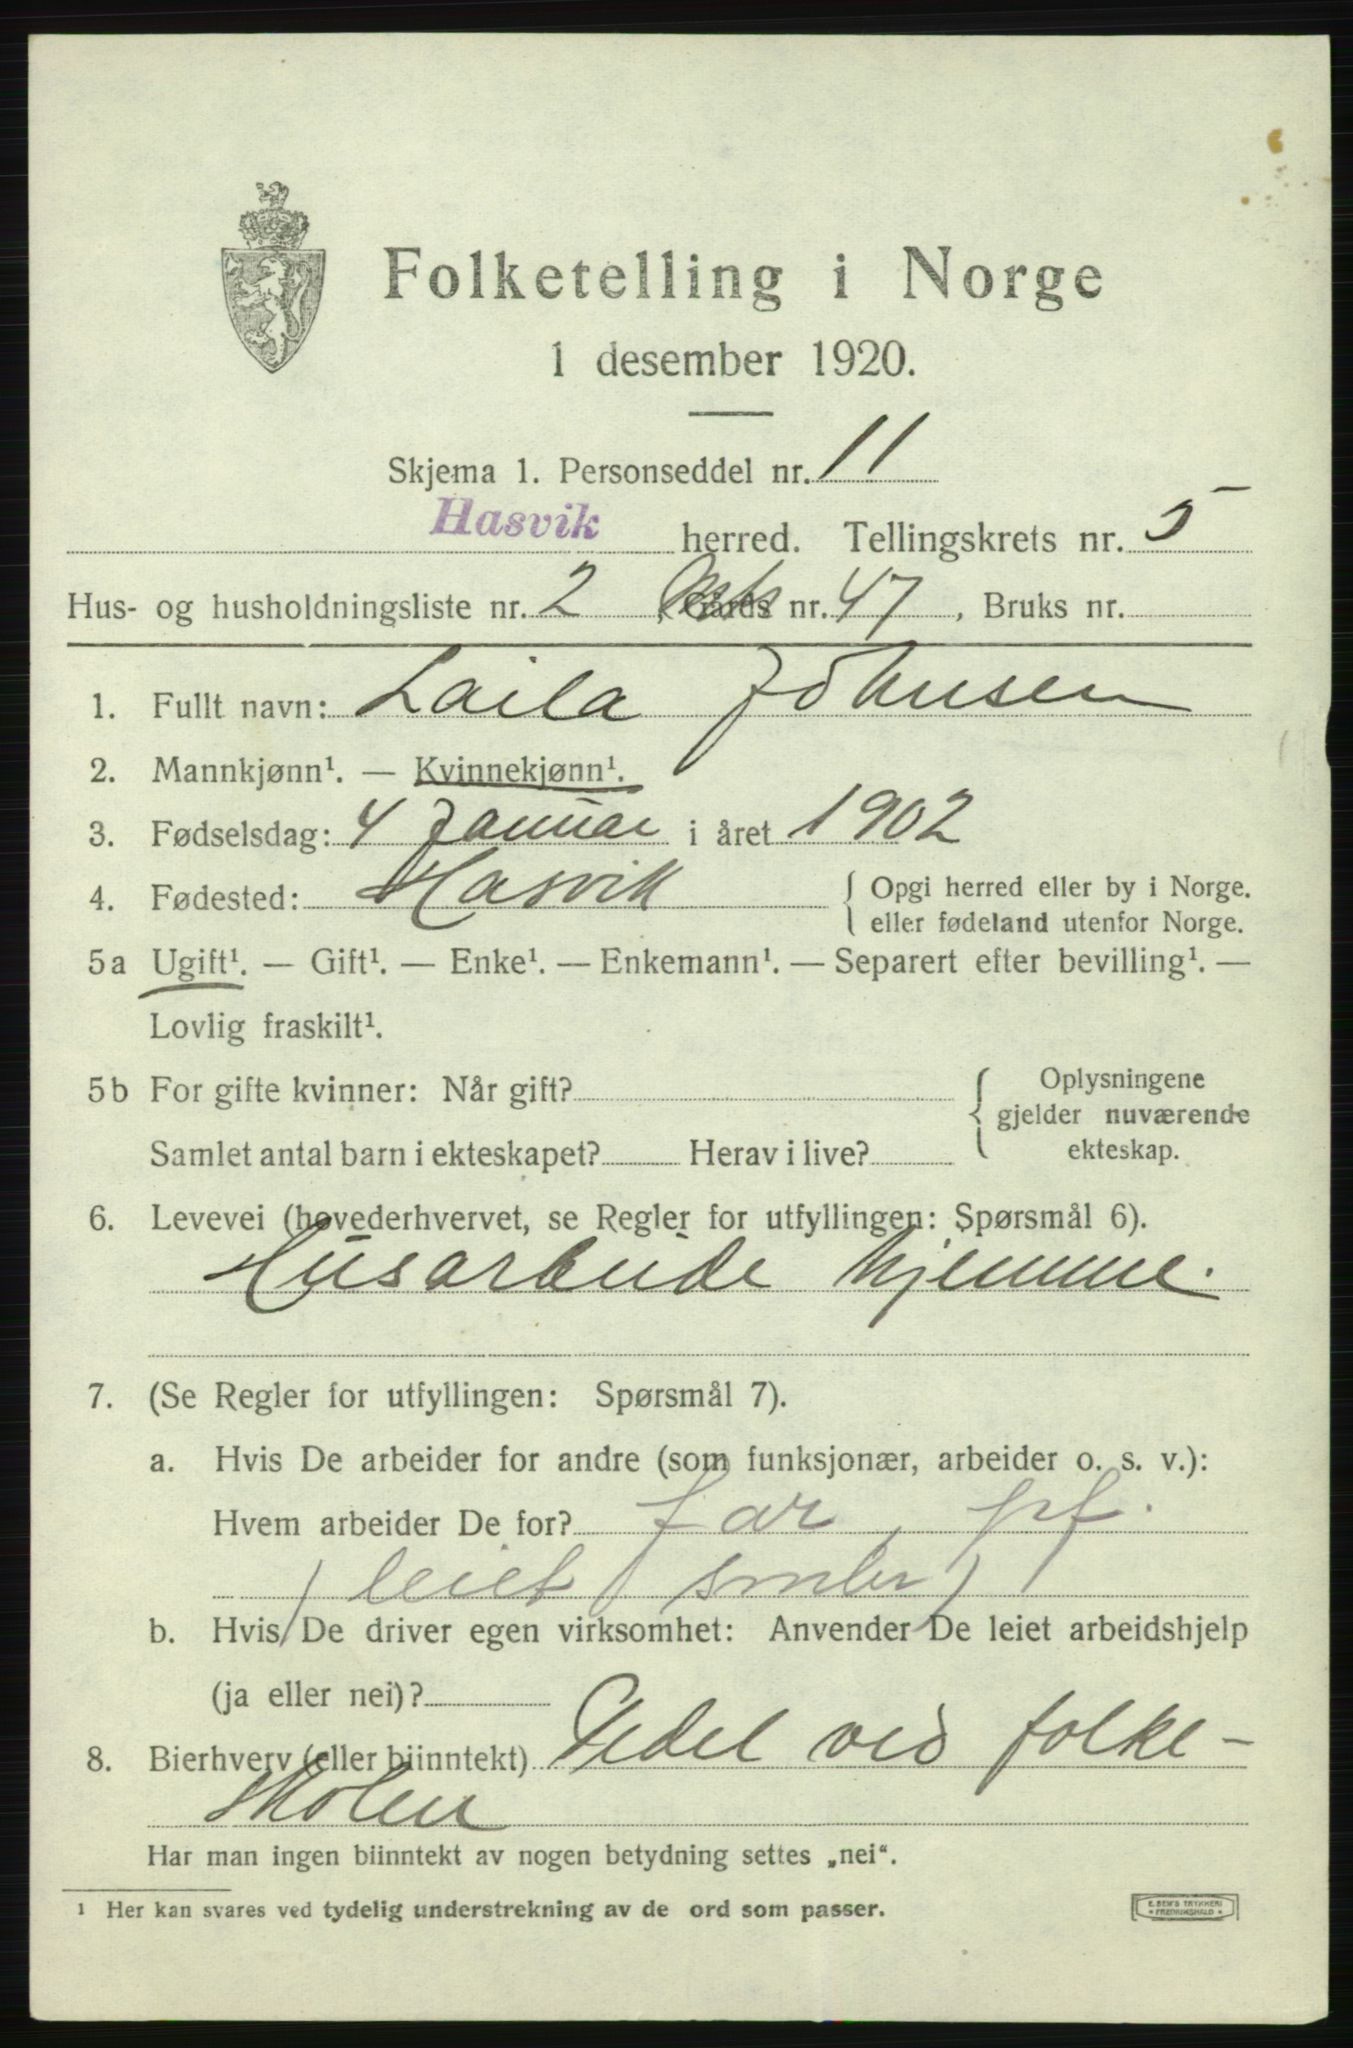 Folketelling i Norge
1 desember 1920.
Skjema 1. Personseddel nr. 11
Hasvik herred. Tellingskrets nr. 5
Hus- og husholdningsliste nr. 2, Gårds nr. 47, Bruks nr.
1. Fullt navn: Laila Johnsen
2. Mannkjønn¹. — Kvinnekjønn¹.
3. Fødselsdag: 4 Januar i året 1902
4. Fødested: Hasvik { Opgi herred eller by i Norge.
eller fødeland utenfor Norge.
5a Ugift¹. — Gift¹. — Enke¹. — Enkemann¹. — Separert efter bevilling¹. —
Lovlig fraskilt¹.
5b For gifte kvinner: Når gift? { Oplysningene
gjelder nuværende
Samlet antal barn i ekteskapet? Herav i live? ekteskap.
6. Levevei (hovederhvervet, se Regler for utfyllingen: Spørsmål 6).
Husarbeide hjemme.
7. (Se Regler for utfyllingen: Spørsmål 7).
a. Hvis De arbeider for andre (som funksjonær, arbeider o. s. v.):
Hvem arbeider De for? far, pf.
(leiet smbr)
b. Hvis De driver egen virksomhet: Anvender De leiet arbeidshjelp
(ja eller nei)?
8. Bierhverv (eller biinntekt) Pedel ved folke-
skolen
Har man ingen biinntekt av nogen betydning settes „nei“.
¹ Her kan svares ved tydelig understrekning av de ord som passer.
E. SEM'S TRYKKERI
* FREDRIKSHALD *